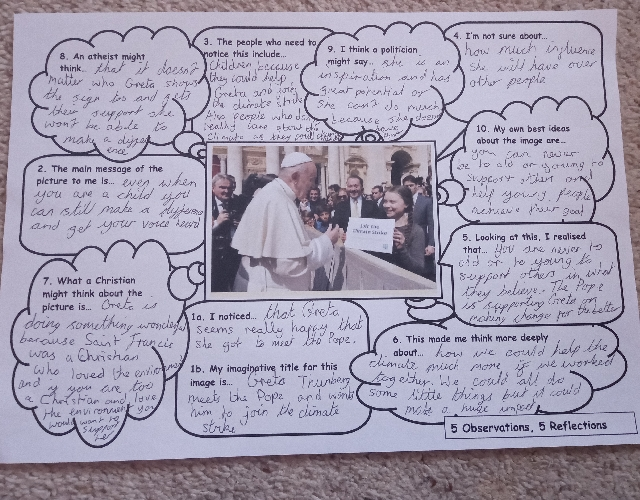 8. An atheist might
think... that it doesn't
matter who Greta shows
the sign to and gets
their support she
won't be able to
make a differ
ence
3. The people who need to
notice this include...
Children, because
they could help
Greta and join
the climate strike
Also people who don't
really care about the
climate as they
9. I think a politician
might say... she is an
inspiration and has
great potential or
she can't do much
because she doesn't
have
4. I'm not sure about...
how much influence
she will have over
other people
2. The main message of the
picture to me is... even when
you are a child you
can still make a difference
and get your voice heard
10. My own best ideas
about the image are...
you can never
be to old or young to
support others and
help young people
achieve their goal
5. Looking at this, I realised
that... You are never to
old or to young to
support others in what
they believe. The Pope
is supporting Greta on
making change for the better
7. What a Christian
might think about the
picture is... Greta is
doing something wonderful
because Saint Francis
was a Christian
who loved the environment
and if you are too
a Christian and love
the environment you
would want to
support
her
1a. I noticed... that Greta
seems really happy that
she got to meet the Pope.
1b. My imaginative title for this
image is... Greta Trunberg
meets the Pope and wants
him to join the climate
strike
6. This made me think more deeply
about... how we could help the
climate much more if we worked
together. We could all do
some little things but it could
make a huge impact
JOIN THE
Climate Strike
5 Observations, 5 Reflections